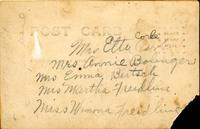 POST CARD
Mrs Etta Cook
Mrs. Annie Bowinger
Mrs Emma Bertsch
Mrs Martha Freidline
Miss Winona Freidline